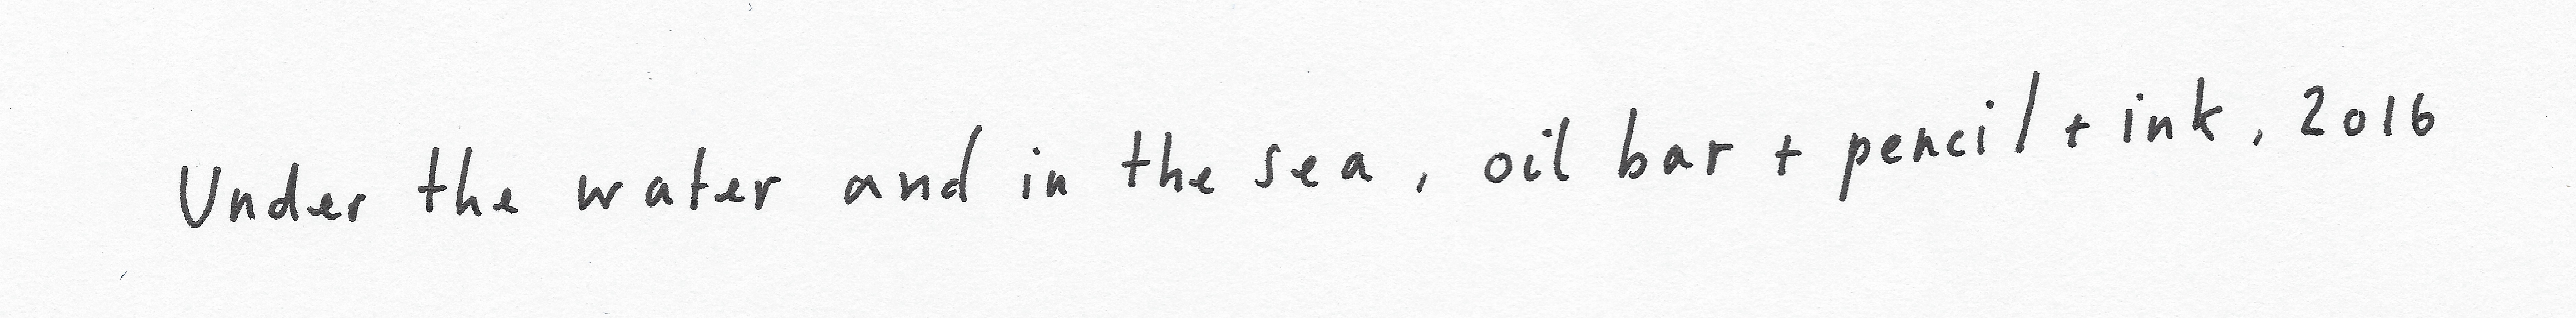 Under the water and in the sea, oil bar + pencil + ink, 2016